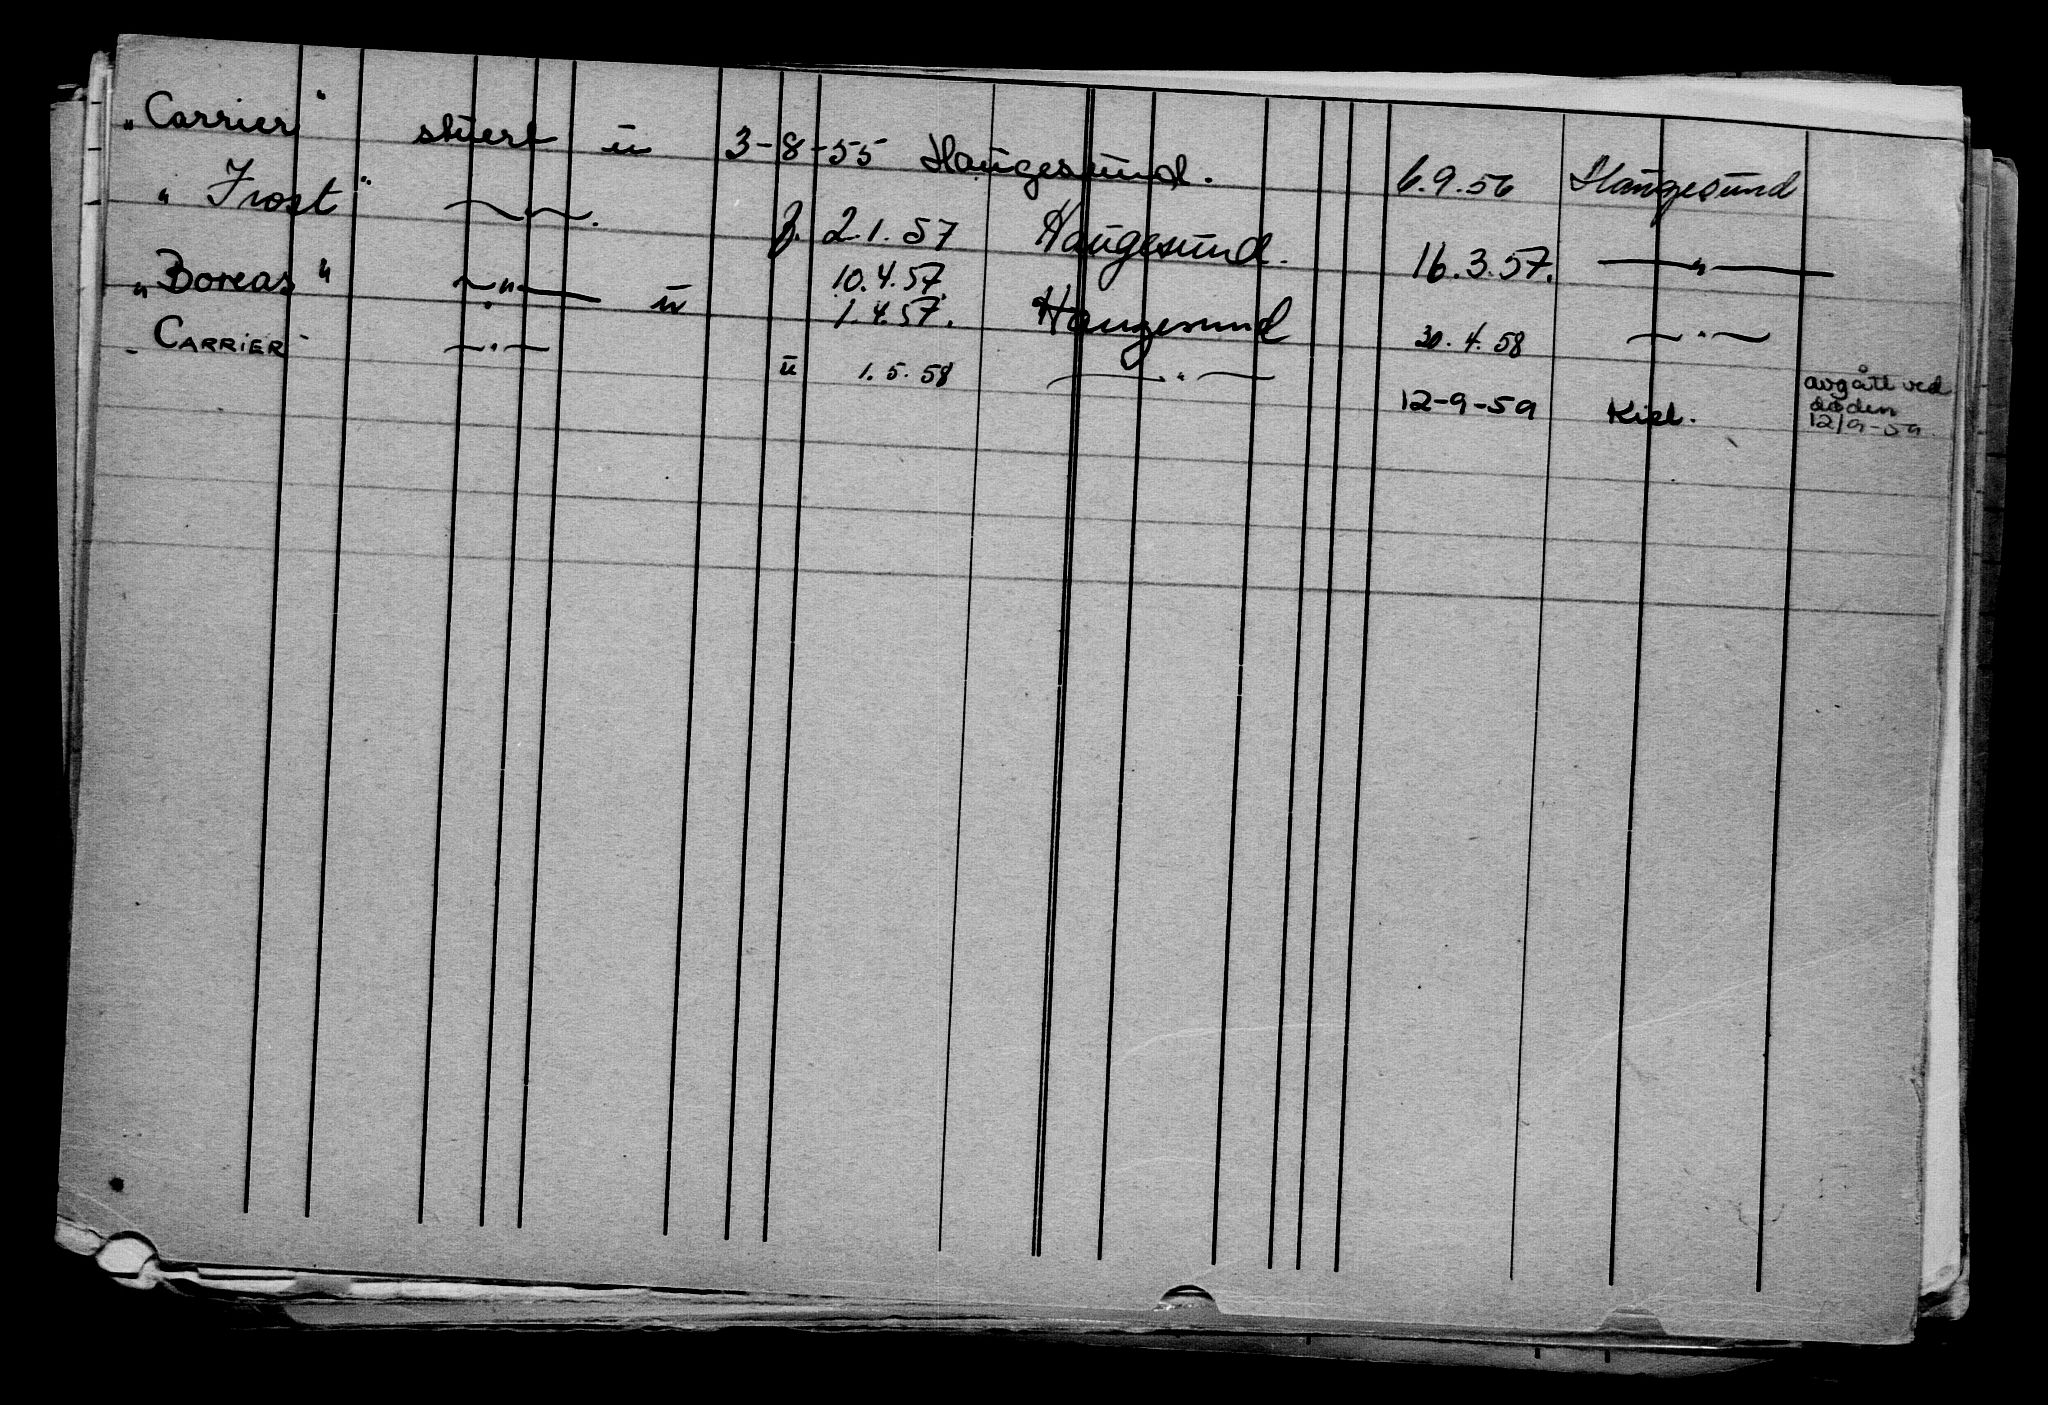 „Carrier" stuert u 3-8-55 Haugesund. 6.9.56 Haugesund
"Frost" —"—. f. 2.1.57 Haugesund. 16.3.57. —"—
10.4.57.
„Boreas" —"— u 1.4.57. Haugesund 30.4.58 —"—
"CARRIER" —"— u 1.5.58 —"— 12-9-59 Kiel.
avgått ved
døden
12/9-59.